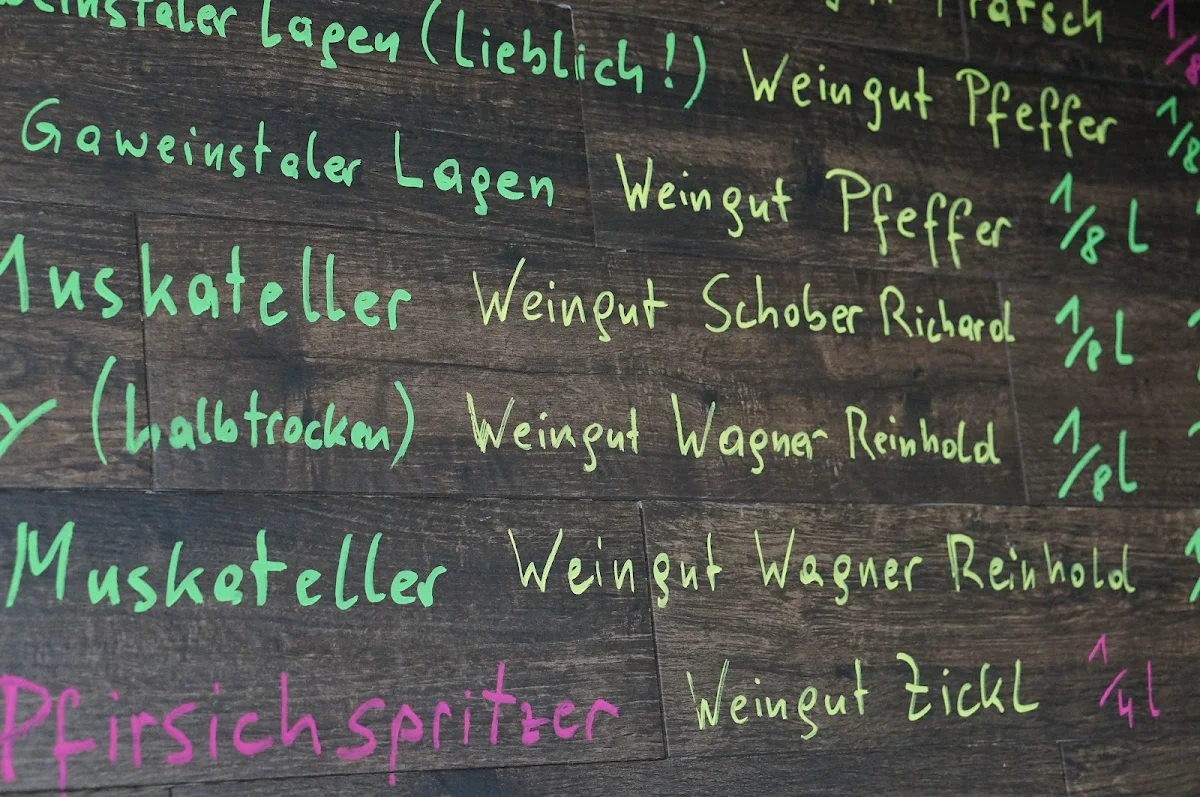 Lagen (Lieblich!) Weingut Pfeffer 1/8
Gaweinstaler Lagen Weingut Pfeffer 1/8 l
Muskateller Weingut Schober Richard 1/8 l
(halbtrocken) Weingut Wagner Reinhold 1/8 l
Muskateller Weingut Wagner Reinhold
Pfirsichspritzer Weingut Zickl 1/4 l